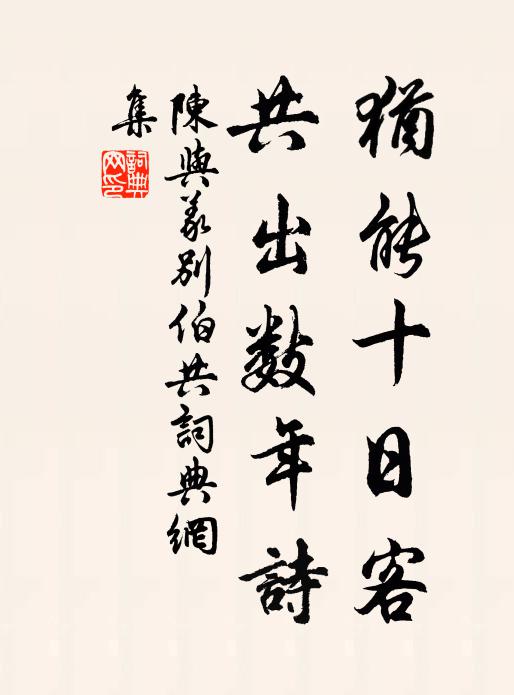 猶能十日客
共出数年詩
陳與義別伯共詞典網
集
詞典
网印